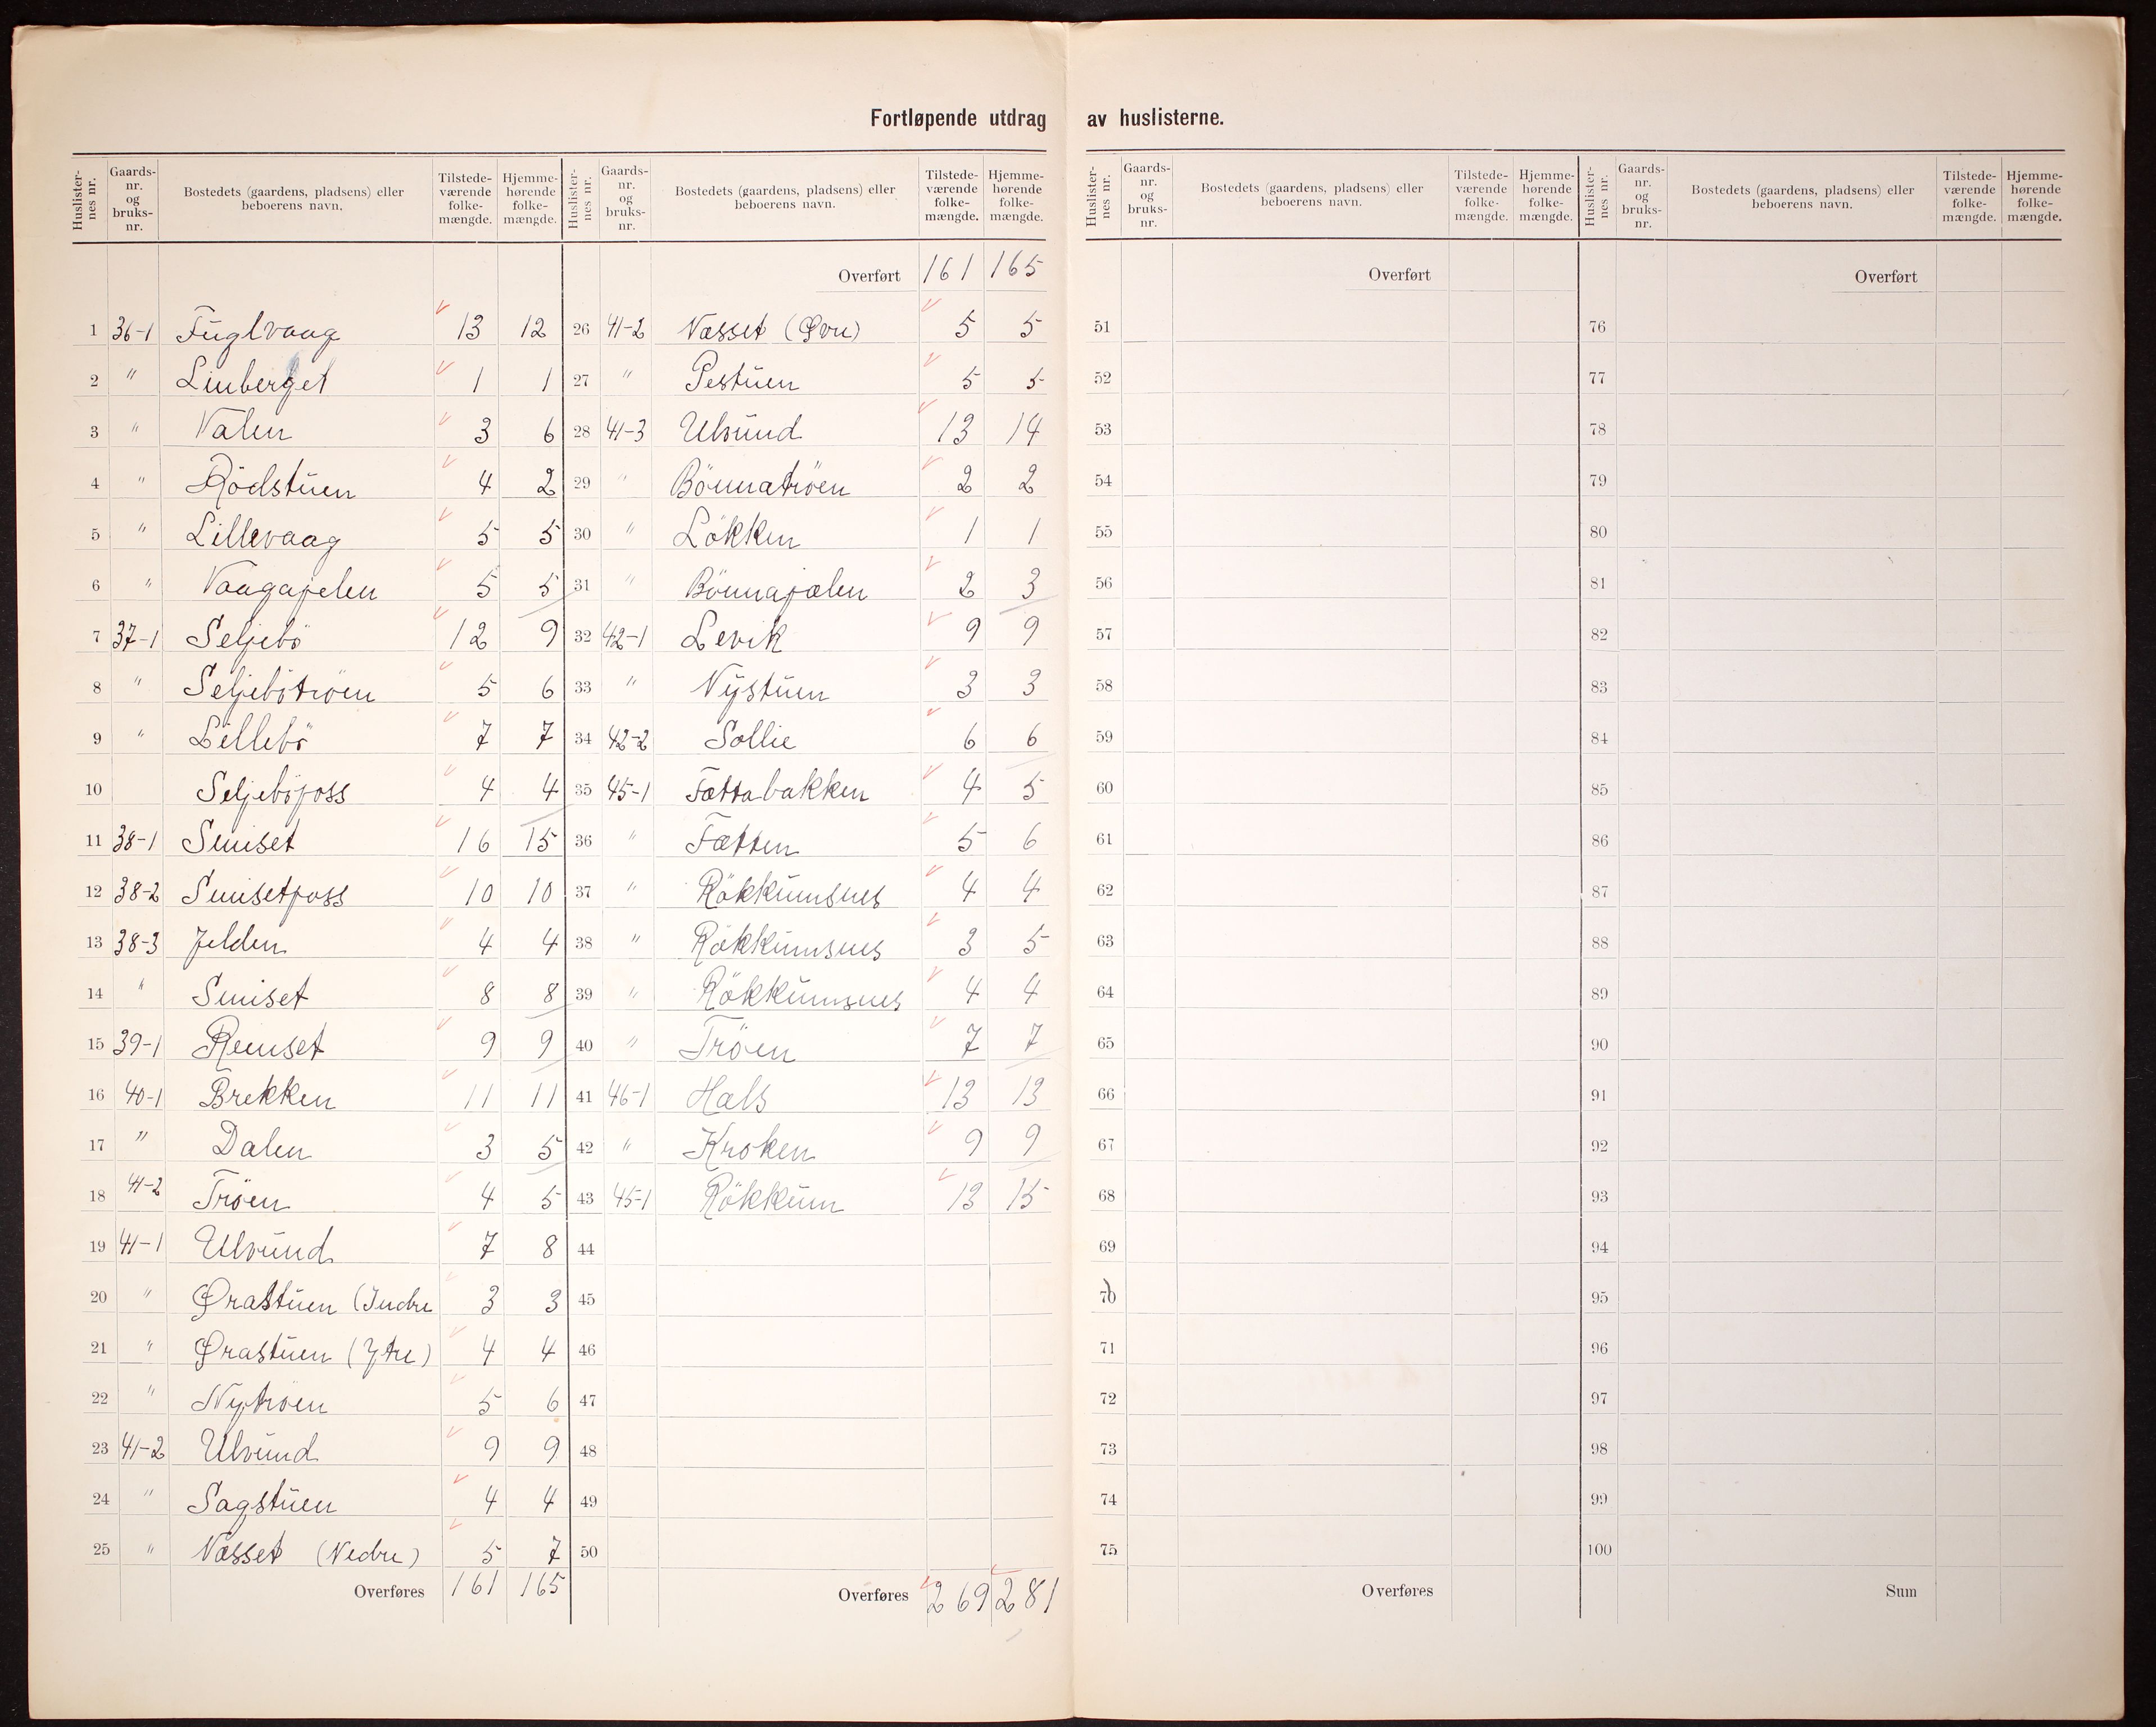 Fortløpende utdrag av huslisterne.
Huslisternes nr. Gaards-nr. og bruks-nr. Bostedets (gaardens, pladsens) eller beboerens navn. Tilstedeværende folkemængde. Hjemmehørende folkemængde.
1 36-1 Fuglvaag 13 12
2 " Linberget 1 1
3 " Valen 3 6
4 " Rödstuen 4 2
5 " Lillevaag 5 5
6 " Vaagajelen 5 5
7 37-1 Seljebö 12 9
8 " Seljebötröen 5 6
9 " Lillebö 7 7
10 Seljeböfoss 4 4
11 38-1 Smiset 16 15
12 38-2 Smisetfoss 10 10
13 38-3 Jelden 4 4
14 " Smiset 8 8
15 39-1 Remset 9 9
16 40-1 Brekken 11 11
17 " Dalen 3 5
18 41-2 Tröen 4 5
19 41-1 Ulvund 7 8
20 " Ørastuen (Indre 3 3
21 " Ørastuen (Ytre) 4 4
22 " Nytröen 5 6
23 41-2 Ulvund 9 9
24 " Sagstuen 4 4
25 " Næsset (Nedre) 5 7
Overføres 161 165
Huslisternes nr. Gaards-nr. og bruks-nr. Bostedets (gaardens, pladsens) eller beboerens navn. Tilstedeværende folkemængde. Hjemmehørende folkemængde.
Overført 161 165
26 41-2 Næsset (Øvre) 5 5
27 " Pestuen 5 5
28 41-3 Ulvund 13 14
29 " Bönnatröen 2 2
30 " Lökken 1 1
31 " Bönnajælen 2 3
32 42-1 Levik 9 9
33 " Nystuen 3 3
34 42-2 Sollie 6 6
35 45-1 Fættabakken 4 5
36 " Fætten 5 6
37 " Rökkumsnes 4 4
38 " Rökkumsnes 3 5
39 " Rökkumsnes 4 4
40 " Tröen 7 7
41 46-1 Hals 13 13
42 " Kroken 9 9
43 45-1 Rökkum 13 15
44
45
46
47
48
49
50
Overføres 269 281
Huslisternes nr. Gaards-nr. og bruks-nr. Bostedets (gaardens, pladsens) eller beboerens navn. Tilstedeværende folkemængde. Hjemmehørende folkemængde.
Overført
51
52
53
54
55
56
57
58
59
60
61
62
63
64
65
66
67
68
69
70
71
72
73
74
75
Overføres
Huslisternes nr. Gaards-nr. og bruks-nr. Bostedets (gaardens, pladsens) eller beboerens navn. Tilstedeværende folkemængde. Hjemmehørende folkemængde.
Overført
76
77
78
79
80
81
82
83
84
85
86
87
88
89
90
91
92
93
94
95
96
97
98
99
100
Sum